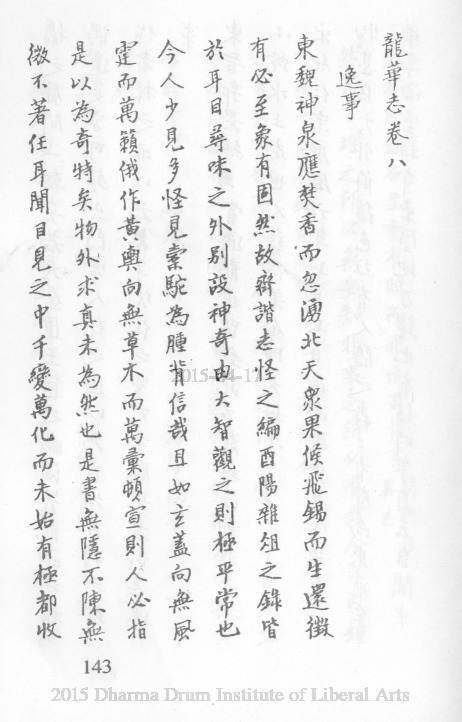 龍華志卷八
逸事
東魏神泉應焚香而忽湧北天眾果候飛錫而生還徵
有必至象有固然故齊諧志怪之編酉陽雜俎之錄皆
於耳目尋味之外別設神奇由大智觀之則極平常也
今人少見多怪見橐駝為腫背信哉且如玄蓋向無風
霆而萬籟俄作黃輿向無草木而萬彙頓宣則人必指
是以為奇特矣物外求真未為然也是書無隱不陳無
微不著任耳聞目見之中千變萬化而未始有極都收
143
2015-04-17
2015 Dharma Drum Institute of Liberal Arts